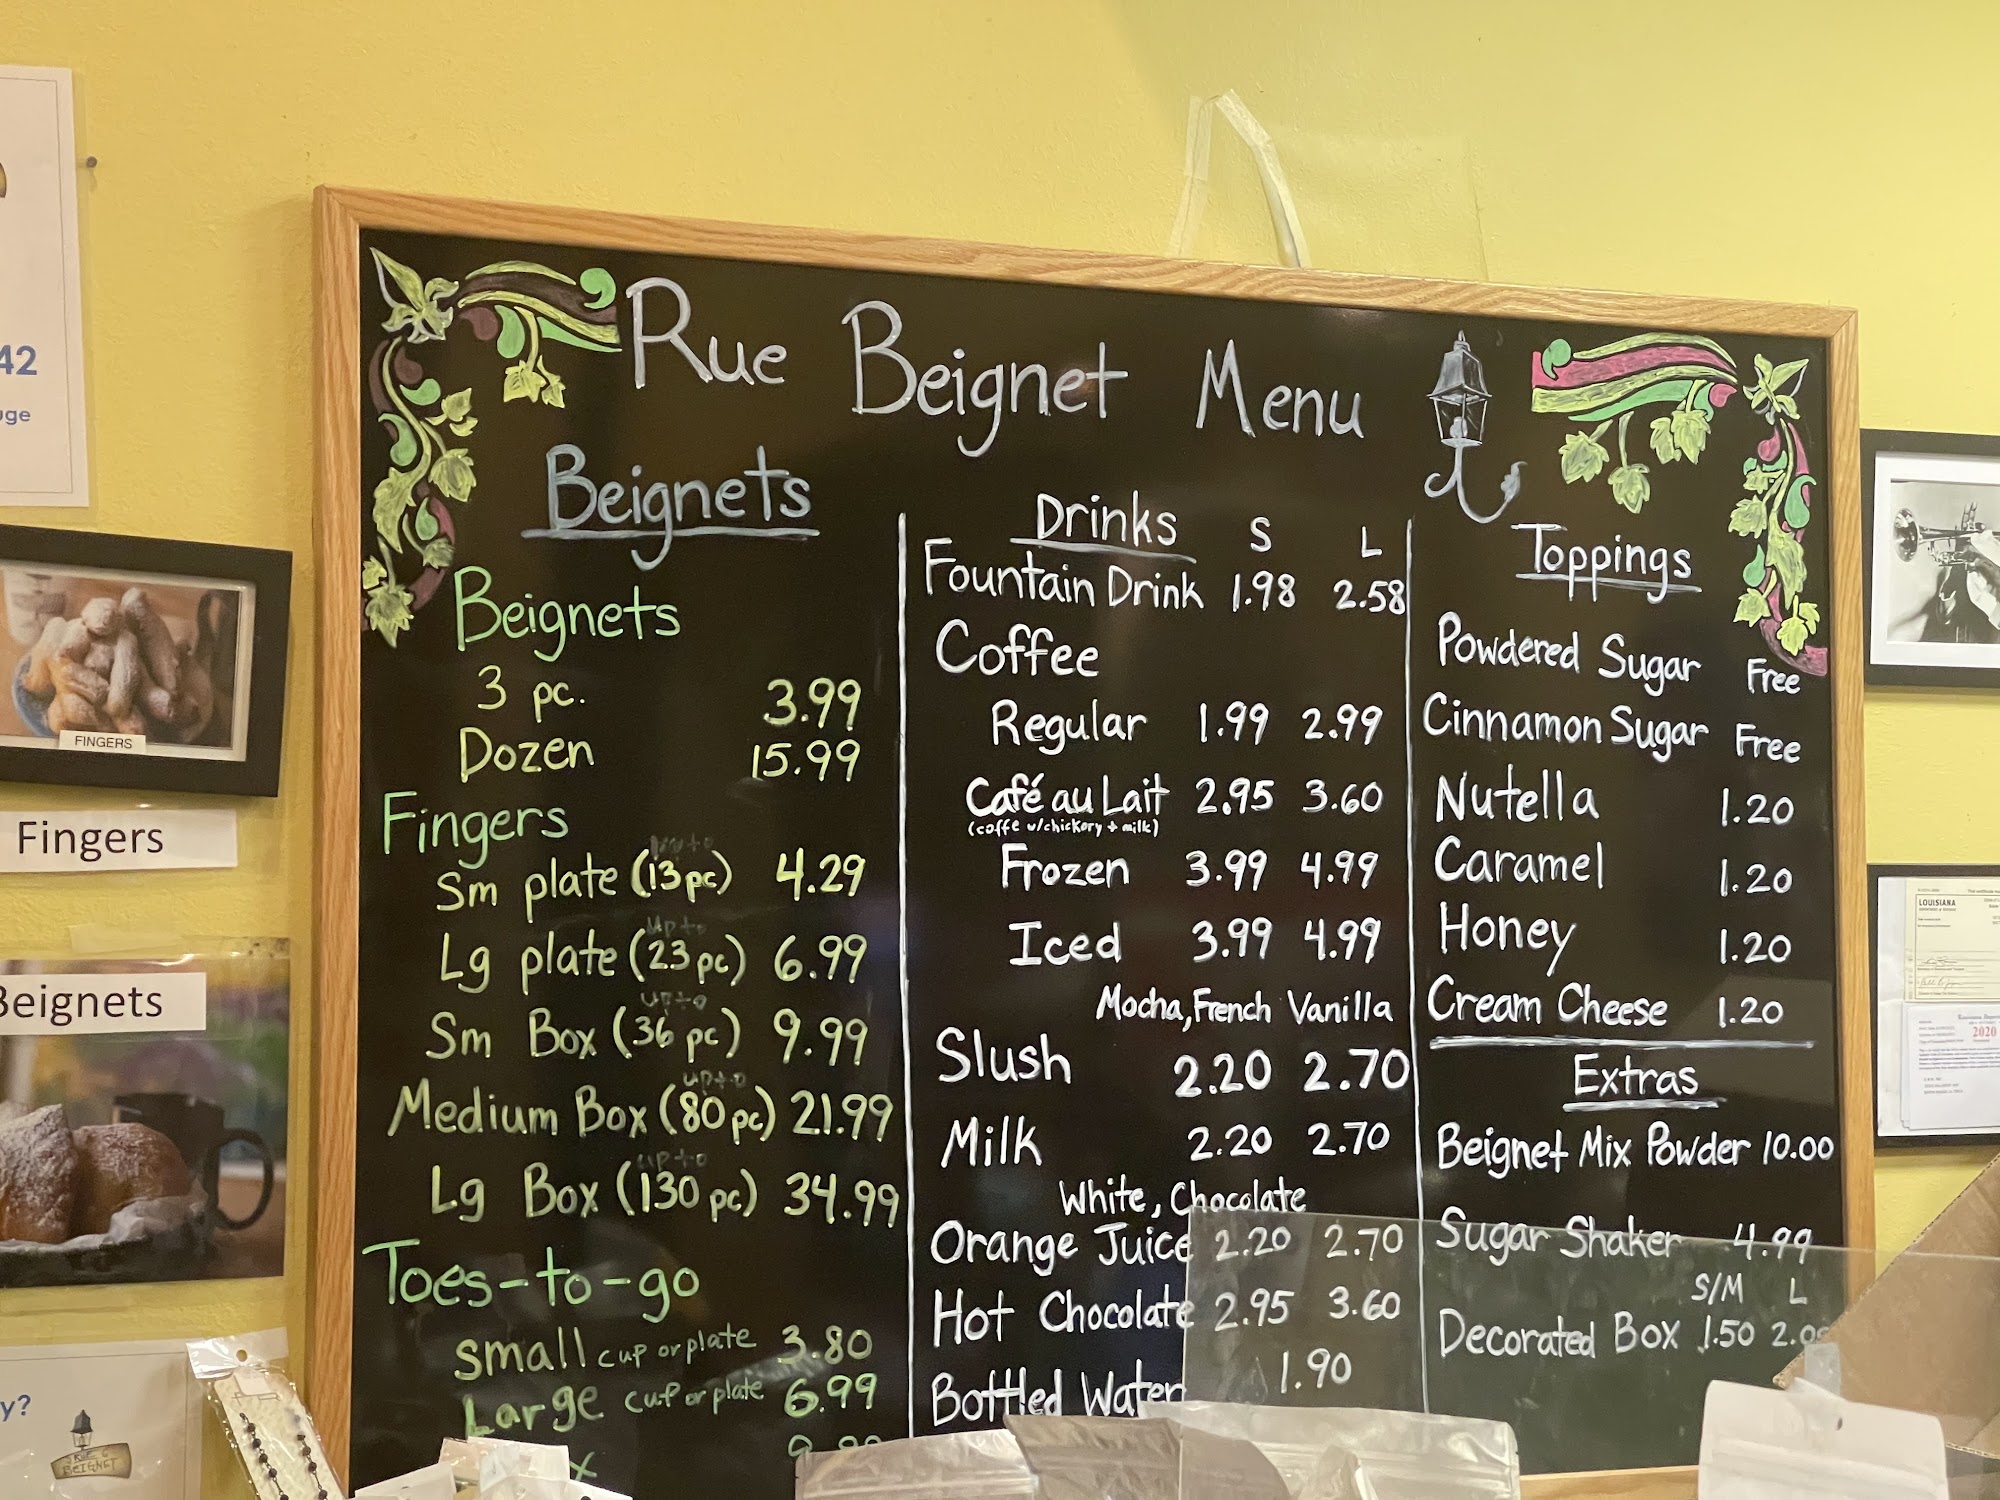 42
uge
FINGERS
Fingers
Beignets
y?
RUE
BEIGNET
Rue Beignet Menu
Beignets
Beignets
3 pc. 3.99
Dozen 15.99
Fingers
Sm plate (13 pc) 4.29
up to
Lg plate (23 pc) 6.99
up to
Sm Box (36 pc) 9.99
up to
Medium Box (80 pc) 21.99
up to
Lg Box (130 pc) 34.99
Toes-to-go
small cup or plate 3.80
Large cup or plate 6.99
x
Drinks S L
Fountain Drink 1.98 2.58
Coffee
Regular 1.99 2.99
Café au Lait 2.95 3.60
(coffe w/chickory + milk)
Frozen 3.99 4.99
Iced 3.99 4.99
Mocha, French Vanilla
Slush 2.20 2.70
Milk 2.20 2.70
White, Chocolate
Orange Juice 2.20 2.70
Hot Chocolate 2.95 3.60
Bottled Water 1.90
Toppings
Powdered Sugar Free
Cinnamon Sugar Free
Nutella 1.20
Caramel 1.20
Honey 1.20
Cream Cheese 1.20
Extras
Beignet Mix Powder 10.00
Sugar Shaker 4.99
S/M L
Decorated Box 1.50 2.0
LOUISIANA
2020